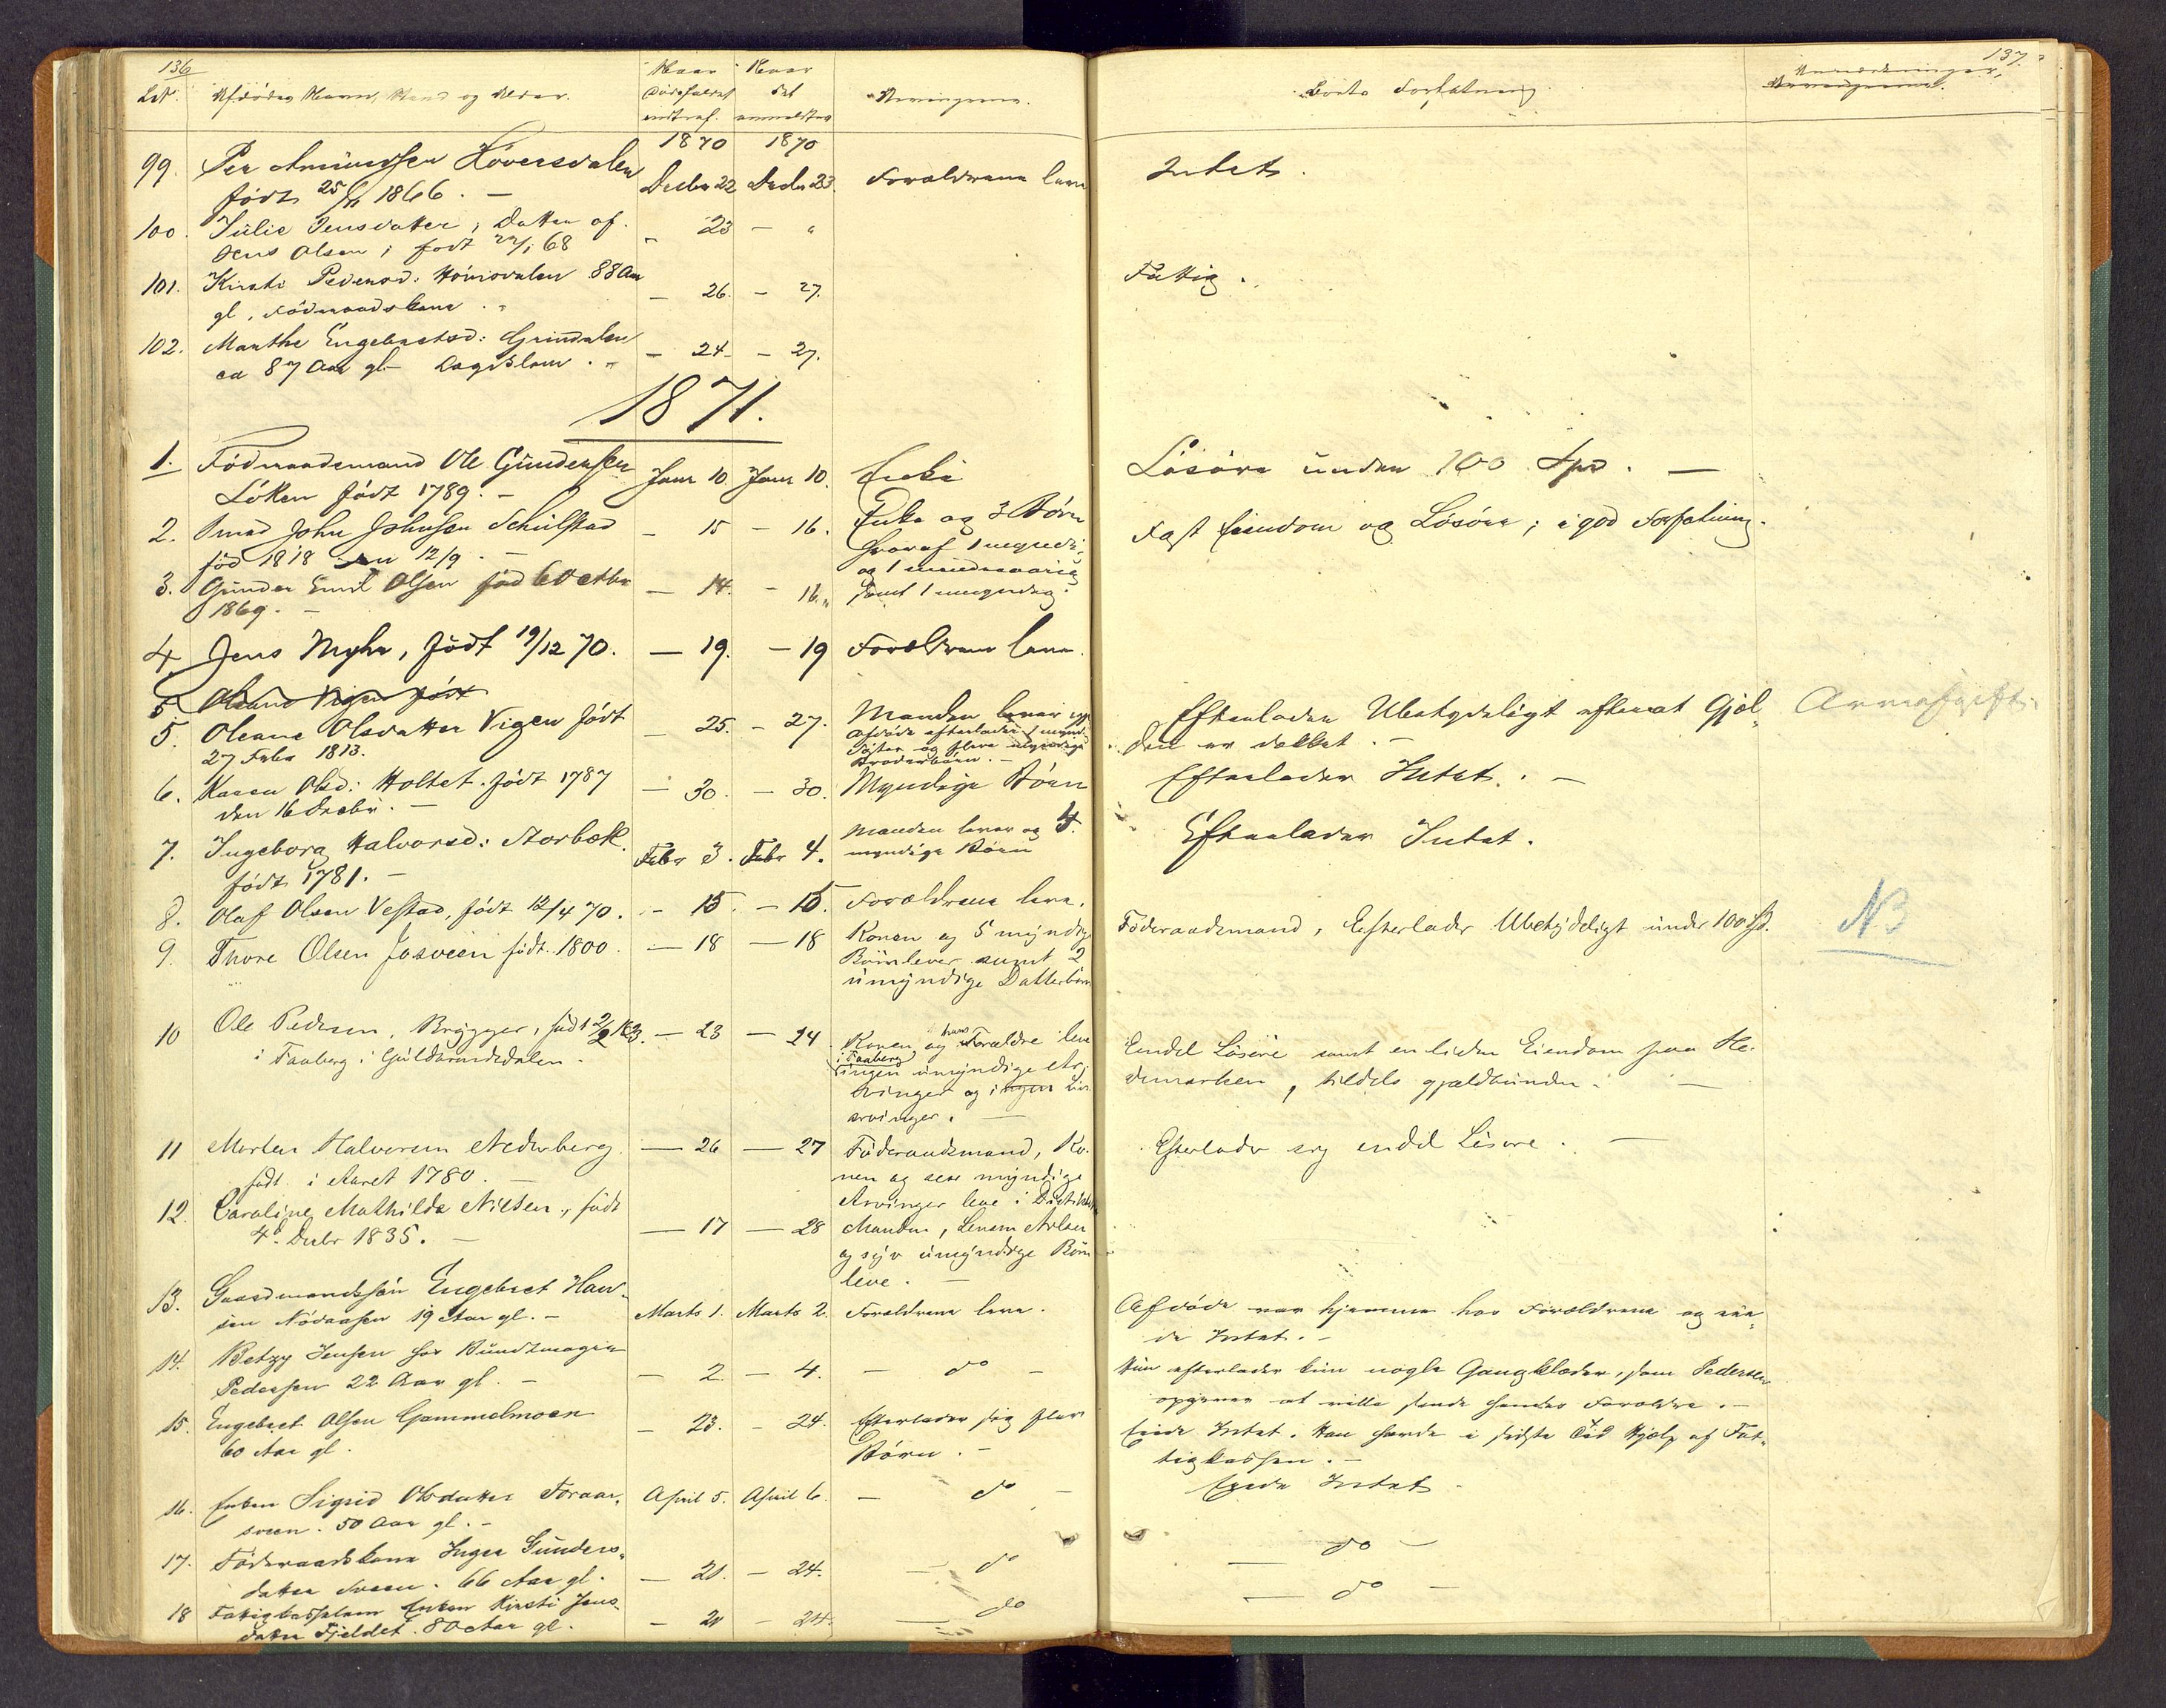 136
Lit.
Afdødes Navn, Stand og Alder.
Naar
Dødsfaldet
indtraf.
Naar
det
anmeldtes
Arvingerne.
1870 1870
99. Per Amundsen Höversdalen Decbr 22 Decbr 23. Forældrene leve
født 25/11 1866. —
100. Julie Jensdatter, Datter af - 23 - "
Jens Olsen, født 22/1 68
101. Kirsti Pedersd: 88 Aar - 26. - 27.
gl, Föderaadskone.
102. Marthe Engebretsd: Grindalen - 24 - 27.
ca 87 Aar gl - Lægdslem.
1871.
1. Föderaadsmand Ole Gundersen Janr 10 Janr 10. Enke
Löken født 1789. -
2. Smed John Johnsen Schulstad - 15 - 16. Enke og 3 Børn
fød 1818 den 12/9. - hvoraf 1 myndig,
og 1 mindreaarig
3. Gunder Emil Olsen fød 6 Octbr - 14. - 16. samt 1 umyndig.
1869. -
4. Jens Myhr, født 19/12 70. - 19. - 19 Forældrene leve.
5 Oleane Vigen født
5. Oleane Olsdatter Vigen født - 25. - 27. Manden lever
27 Febr 1813. Afdøde efterlader 1 mynd.
Søster og flere myndige
Broderbørn. -
6. Karen Olsd: Holtet. født 1787 - 30. - 30. Myndige Börn
den 16 Decbr. -
7. Ingeborg Halvorsd: Storbæk. Febr 3. Febr 4. Manden lever og 4.
født 1781. - myndige Börn
8. Olaf Olsen Vestad, født 12/4 70. - 15. - 15. Forældrene leve.
9. Thore Olsen Josveen født 1800. - 18 - 18 Konen og 5 myndige
Börn lever samt 2
umyndige Datterbörn
10 Ole Pedersen, Brygger, født 2/2 - 23 - 24 Konen og hans Forældre leve
i Faaberg i Guldbrandsdalen. i Faaberg
ingen umyndige Ar-
vinger og ingen Livs
arvinger. -
11 Morten Halvorsen Nederberg. - 26 - 27 Föderaadsmand, Ko-
født i Aaret 1780. - nen og sex myndige
Arvinger leve i Distriktet
12. Caroline Mathilde Nilsen, født - 17 - 28 Manden,
4d Decbr 1835. - og syv umyndige Börn
leve. -
13. Gaardmandssön Engebret Han-
sen Nödaasen 19 Aar gl. - Marts 1. Marts 2. Forældrene leve.
14. Betzy Jensen hos Bundtmager - 2. - 4. - do -
Pedersen 22 Aar gl. -
15. Engebret Olsen Gammelmoen - 23. - 24. Efterlader sig flere
60 Aar gl. Börn. -
16. Enken Sigrid Olsdatter Foraar- April 5. April 6. - do -
sveen. 50 Aar gl. -
17. Föderaadskone Inger Gunders- - 21. - 24. - do
datter Sveen. 66 Aar gl.
18 Fattigkasselem Enken Kirsti Jens- - 21 - 24. - do
datter Fjeldet. 80 Aar gl.
137.
Boets Forfatning
Anmærkninger.
Arvingerne.
Intet.
Fattig.
Lösöre under 100 Spd. —
Fast Eiendom og Lösöre; i god Forfatning.
Efterlader Ubetydeligt efterat Gjæl- Arveafgift.
den er dækket. -
Efterlader Intet. -
Efterlader Intet.
Föderaadsmand, Efterlader Ubetydeligt under 100 Spd. NB
Endel Lösöre samt en liden Eiendom paa He-
demarken, tildels gjældbunden. —
Efterlader sig endel Lösöre. —
Afdöde var hjemme hos Forældrene og eie-
de Intet. -
Hun efterlader kun nogle Gangklæder, som Pedersen
opgiver at ville sende hendes Forældre. -
Eiede Intet. Han havde i sidste Tid Hjælp af Fat-
tigkassen. -
Eiede Intet -
— do —
— do —